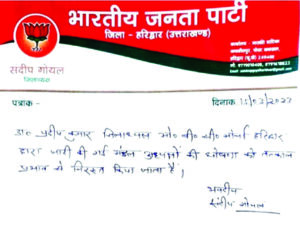 भारतीय जनता पार्टी
जिला - हरिद्वार (उत्तराखण्ड)
संदीप गोयल
जिलाध्यक्ष
पत्रांक -
दिनांक 15/03/2022
डा० प्रदीप कुमार जिलाध्यक्ष ओ० बी० सी० मोर्चा हरिद्वार
द्वारा जारी की गई मंडल अध्यक्षों की घोषणा को तत्काल
प्रभाव से निरस्त किया जाता है।
भवदीय
संदीप गोयल